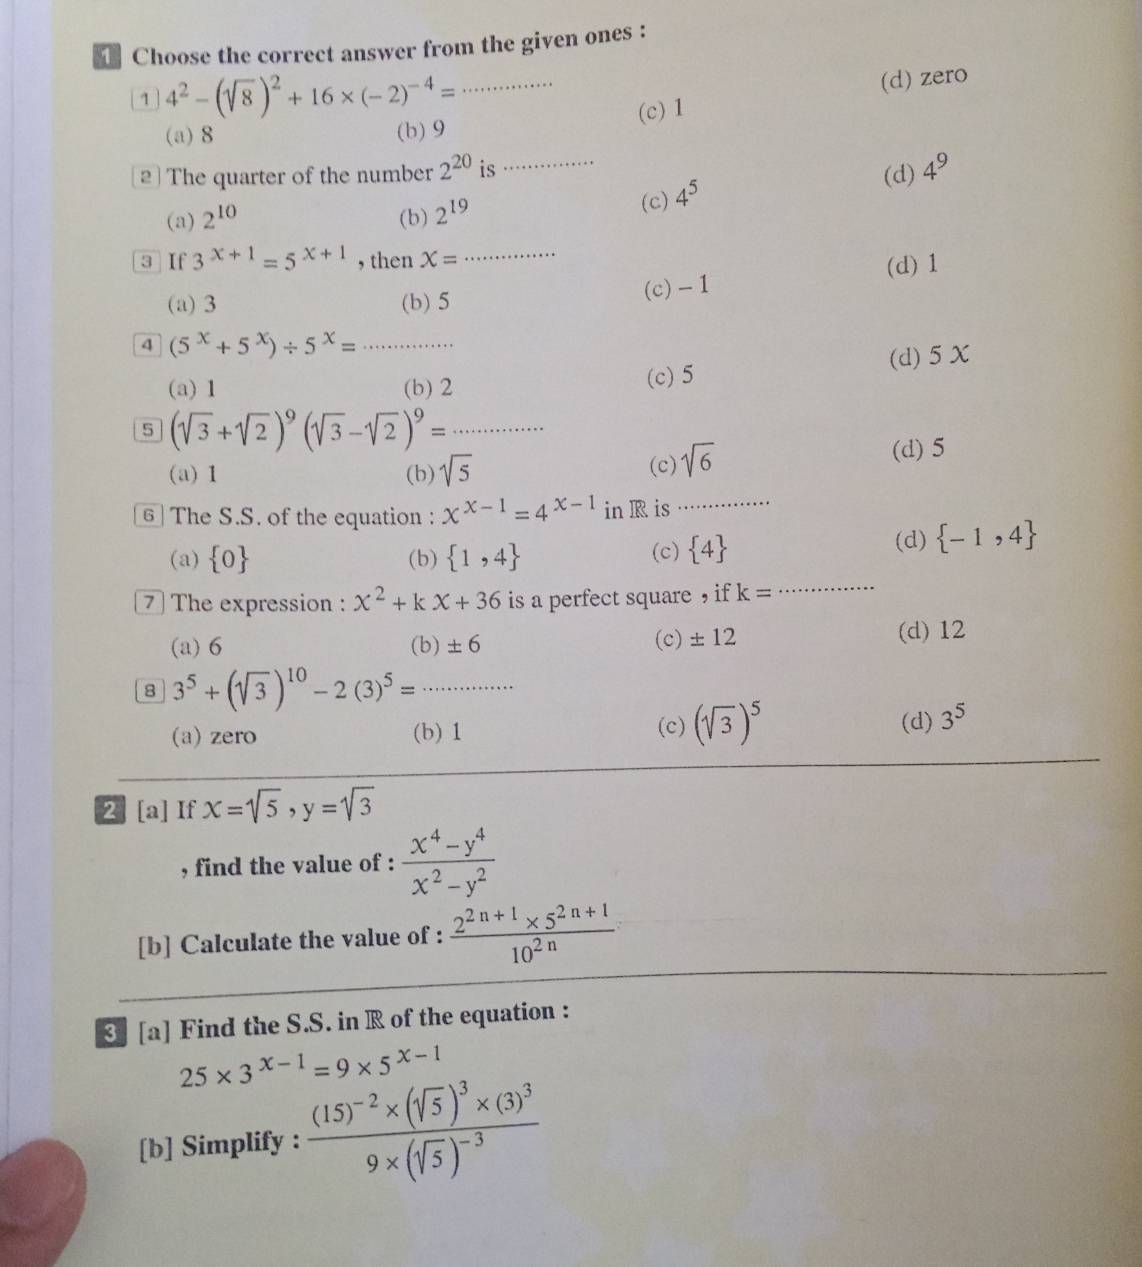 1 Choose the correct answer from the given ones :
1 4² − (√8)² + 16 × (− 2)⁻⁴ = ..............
(a) 8 (b) 9 (c) 1 (d) zero
2 The quarter of the number 2²⁰ is ..............
(a) 2¹⁰ (b) 2¹⁹ (c) 4⁵ (d) 4⁹
3 If 3^(x + 1) = 5^(x + 1) , then x = ..............
(a) 3 (b) 5 (c) − 1 (d) 1
4 (5^x + 5^x) ÷ 5^x = ..............
(a) 1 (b) 2 (c) 5 (d) 5 x
5 (√3 + √2)⁹ (√3 − √2)⁹ = ..............
(a) 1 (b) √5 (c) √6 (d) 5
6 The S.S. of the equation : x^(x − 1) = 4^(x − 1) in ℝ is ..............
(a) {0} (b) {1 , 4} (c) {4} (d) {− 1 , 4}
7 The expression : x² + k x + 36 is a perfect square , if k = ..............
(a) 6 (b) ± 6 (c) ± 12 (d) 12
8 3⁵ + (√3)¹⁰ − 2 (3)⁵ = ..............
(a) zero (b) 1 (c) (√3)⁵ (d) 3⁵
2 [a] If x = √5 , y = √3
, find the value of : (x⁴ − y⁴) / (x² − y²)
[b] Calculate the value of : (2^(2 n + 1) × 5^(2 n + 1)) / 10^(2 n)
3 [a] Find the S.S. in ℝ of the equation :
25 × 3^(x − 1) = 9 × 5^(x − 1)
[b] Simplify : ((15)⁻² × (√5)³ × (3)³) / (9 × (√5)⁻³)